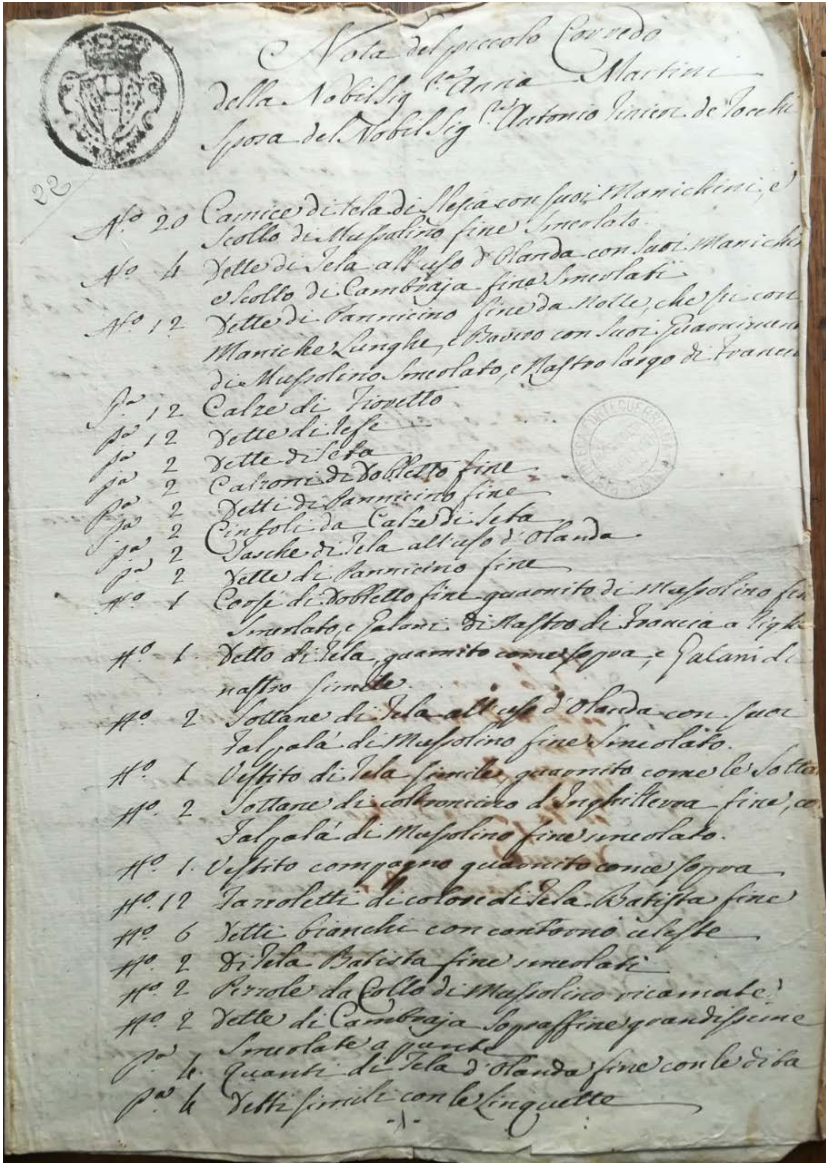 Nota del piccolo Corredo
della Nobil Sig.ra Anna Martini
Sposa del Nobil Sig.re Antonio de
22
N.o 20 Camice di tela di Slesia con suoi Manichini, e
Scollo di Mussolino fine Smerlato.
N.o 4 Dette di Tela all'uso d'Olanda con Suoi Manichi
e Scollo di Cambraja fine Smerlati
N.o 12 Dette di Pannicino fine da Notte, che sei con
Maniche Lunghe, e Bavero con Suoi Guarnimen
di Mussolino Smerlato, e Nastro largo di Francia
P.a 12 Calze di
P.a 12 Dette di Refe
P.a 2 Dette di Seta
P.a 2 Calzoni di Dobletto fine
P.a 2 Detti di Pannicino fine
P.a 2 Cintoli da Calze di Seta
P.a 2 Tasche di Tela all'uso d'Olanda
P.a 2 Dette di Pannicino fine
N.o 1 Corsè di Dobletto fine guarnito di Mussolino fin
Smerlato, e Galani di Nastro di Francia a
N.o 1. Detto di Tela, guarnito come sopra, e Galani di
nastro simile.
N.o 2 Sottane di Tela all'uso d'Olanda con suoi
Falpalà di Mussolino fine Smerlato.
N.o 1 Vestito di Tela simile guarnito come le Sotta
N.o 2 Sottane di coltroncino d'Inghilterra fine, co
Falpalà di Mussolino fine smerlato.
N.o 1. Vestito compagno guarnito come sopra
N.o 12 Fazzoletti di colore di Tela Batista fine
N.o 6 Detti bianchi con contorno celeste
N.o 2 Di Tela Batista fine smerlati
N.o 2 Pezzole da Collo di Mussolino ricamate
N.o 2 Dette di Cambraja Sopraffine grandissime
Smerlate a punte
P.a 4. Guanti di Tela d'Olanda fine con le dita
P.a 4 Detti simili con le Linguette
-1-